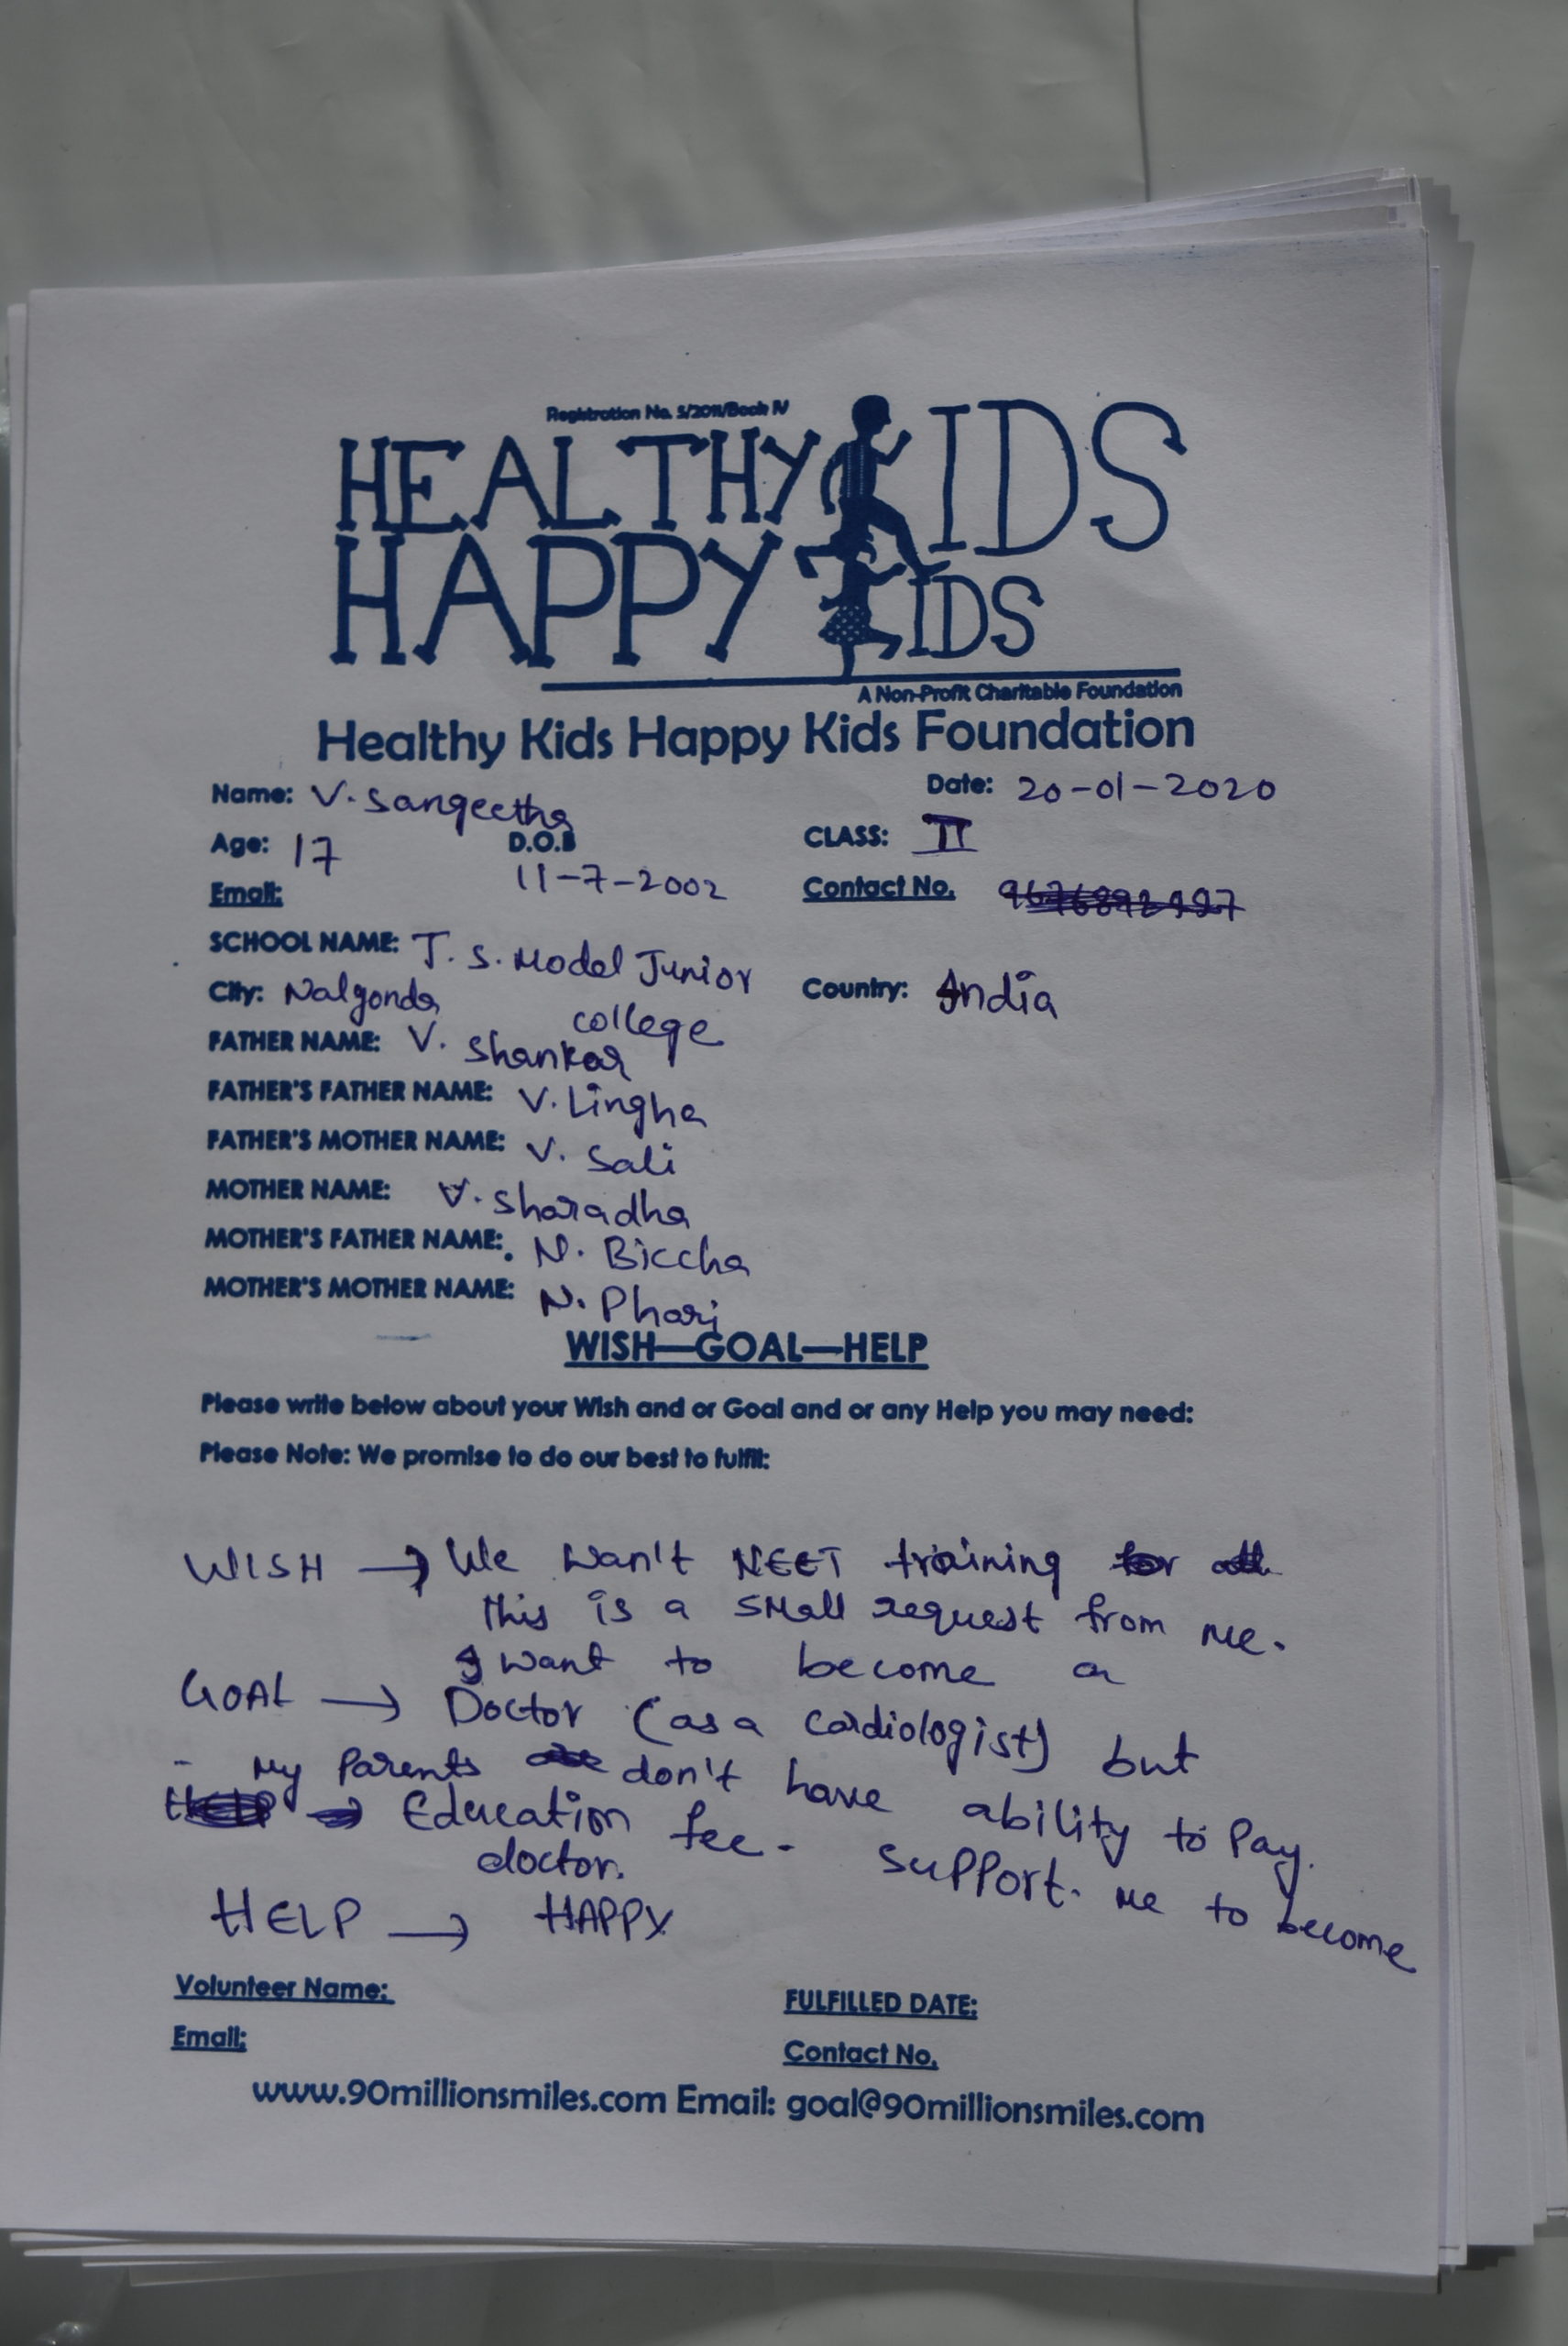 Registration No. 5/2011/Book IV
HEALTHY KIDS
HAPPY KIDS
A Non-Profit Charitable Foundation
Healthy Kids Happy Kids Foundation
Name: V. Sangeetha Date: 20-01-2020
Age: 17 D.O.B 11-7-2002 CLASS: II
Email: Contact No.
SCHOOL NAME: T. S. Model Junior college
City: Nalgonda Country: India
FATHER NAME: V. Shankar
FATHER'S FATHER NAME: V. Lingha
FATHER'S MOTHER NAME: V. Sali
MOTHER NAME: V. Sharadha
MOTHER'S FATHER NAME: N. Biccha
MOTHER'S MOTHER NAME: N. Phari
WISH—GOAL—HELP
Please write below about your Wish and or Goal and or any Help you may need:
Please Note: We promise to do our best to fulfil:
WISH → We wan't NEET training
this is a small request from me.
I want to become a
GOAL → Doctor (as a cardiologist) but
my parents don't have ability to pay.
Education fee. Support. me to become
doctor.
HELP → HAPPY
Volunteer Name: FULFILLED DATE:
Email: Contact No.
www.90millionsmiles.com Email: goal@90millionsmiles.com